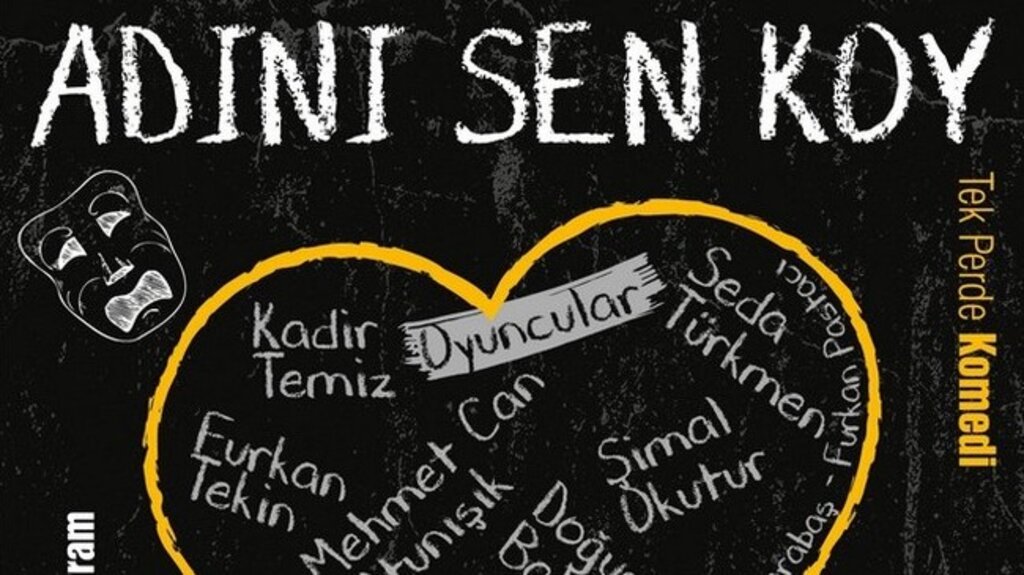 ADINI SEN KOY
Tek Perde Komedi
Oyuncular
Kadir
Temiz
Seda
Türkmen
Furkan
Tekin
Mehmet Can
Şimal
Okutur
Furkan Pastacı